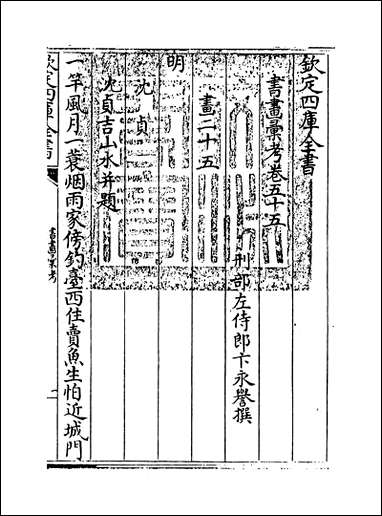 欽定四庫全書
書畫彙考卷五十五
刑部左侍郎卞永譽撰
畫二十五
明
沈貞
沈貞吉山水并題
一竿風月一蓑烟雨家傍釣臺西住賣魚生怕近城門
欽定四庫全書
書畫彙考
一